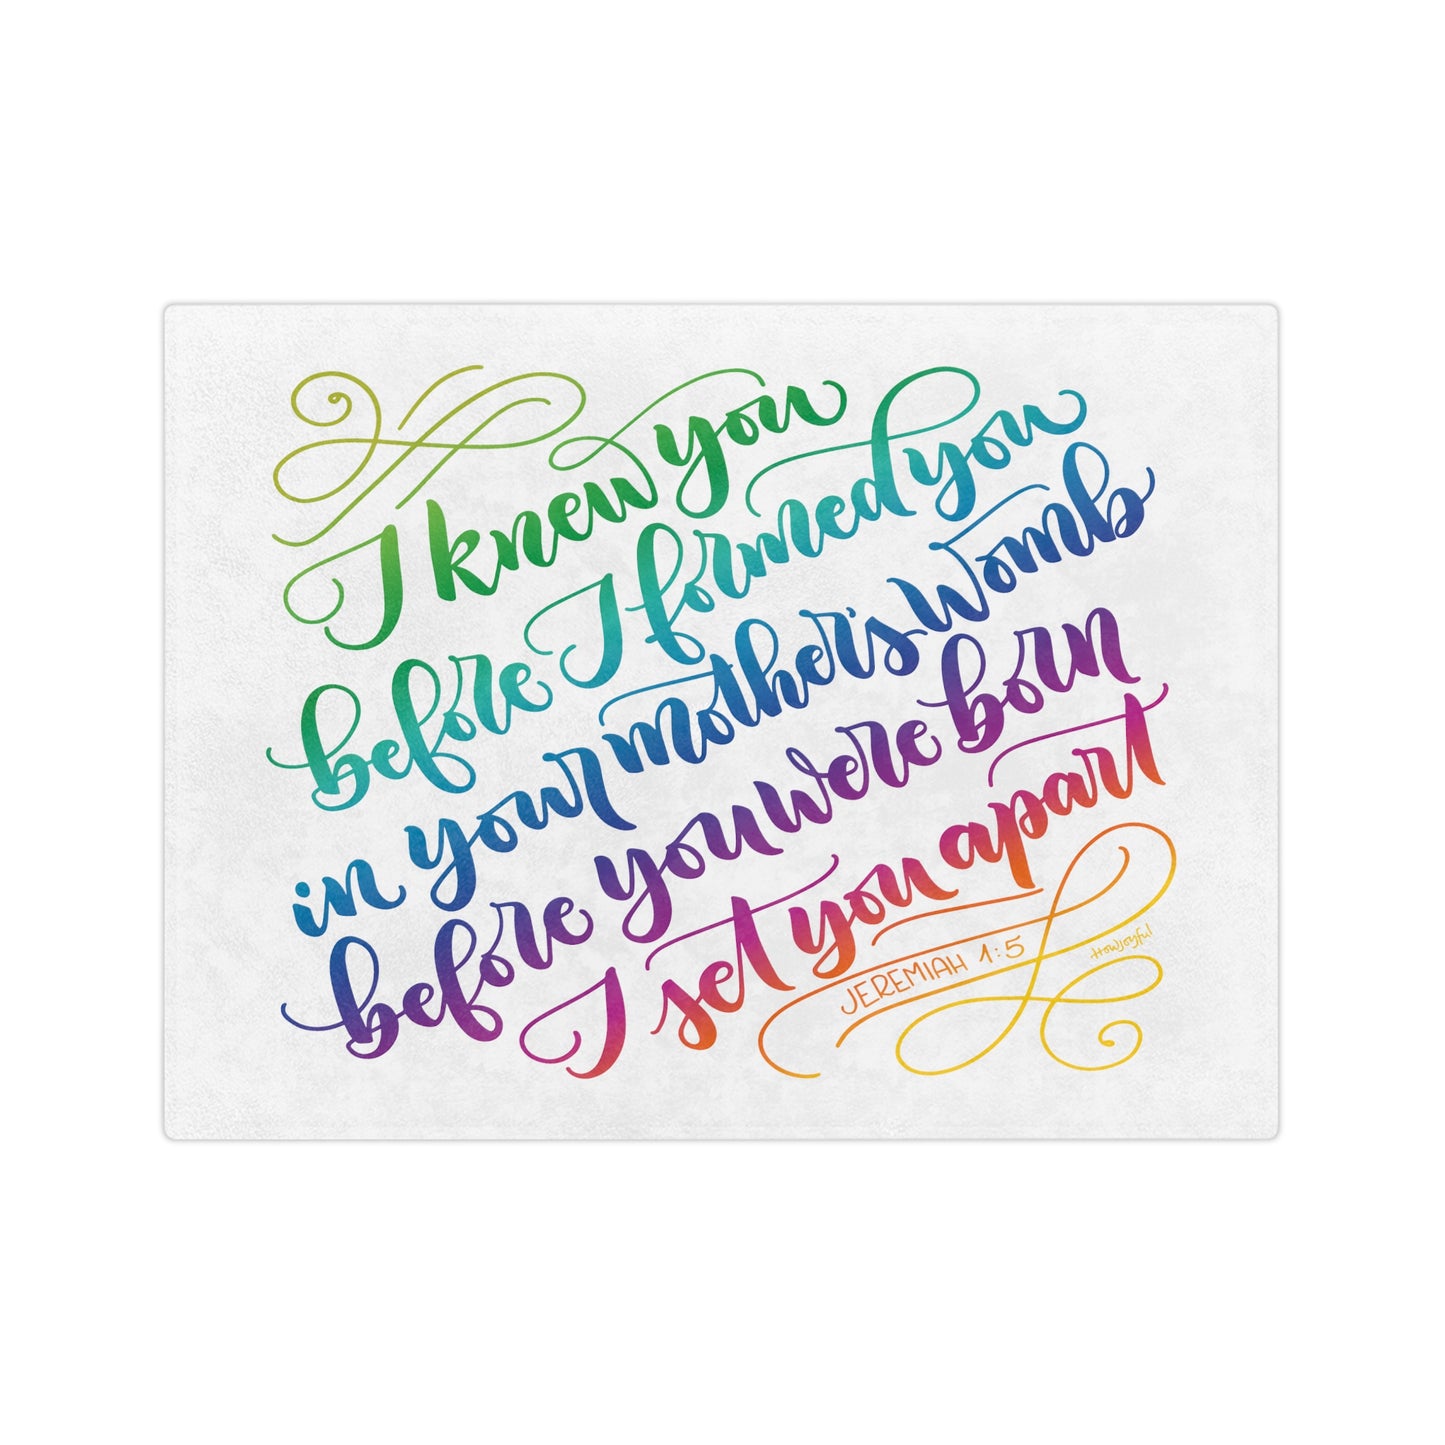 I knew you
before I formed you
in your mother's womb
before you were born
I set you apart
JEREMIAH 1:5
Howjoyful